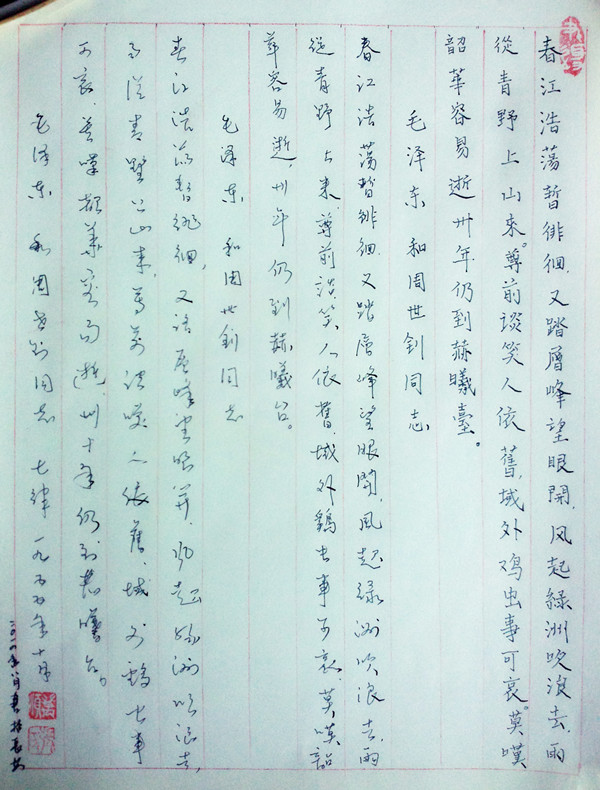 春江浩蕩暫徘徊.又踏層峰望眼開.风起綠洲吹浪去.雨
從青野上山來。尊前談笑人依舊,域外鸡虫事可哀。莫嘆
韶華容易逝卅年仍到赫曦臺。
毛泽东 和周世钊同志
春江浩蕩暫徘徊.又踏層峰望眼開.风起绿洲吹浪去.雨
從青野上山来.尊前談笑人依舊.域外鷄虫事可哀.莫嘆韶
華容易逝卅年仍到赫曦台。
毛泽东 和周世钊同志
春江浩蕩暫徘徊,又踏层峰望眼開.风起绿洲吹浪去,
雨從青野上山来.尊前談笑人依舊.域外鷄虫事
可哀.莫嘆韶華容易逝.卅年仍到赫曦台。
毛泽东 和周世钊同志 七律 一九五五年十月